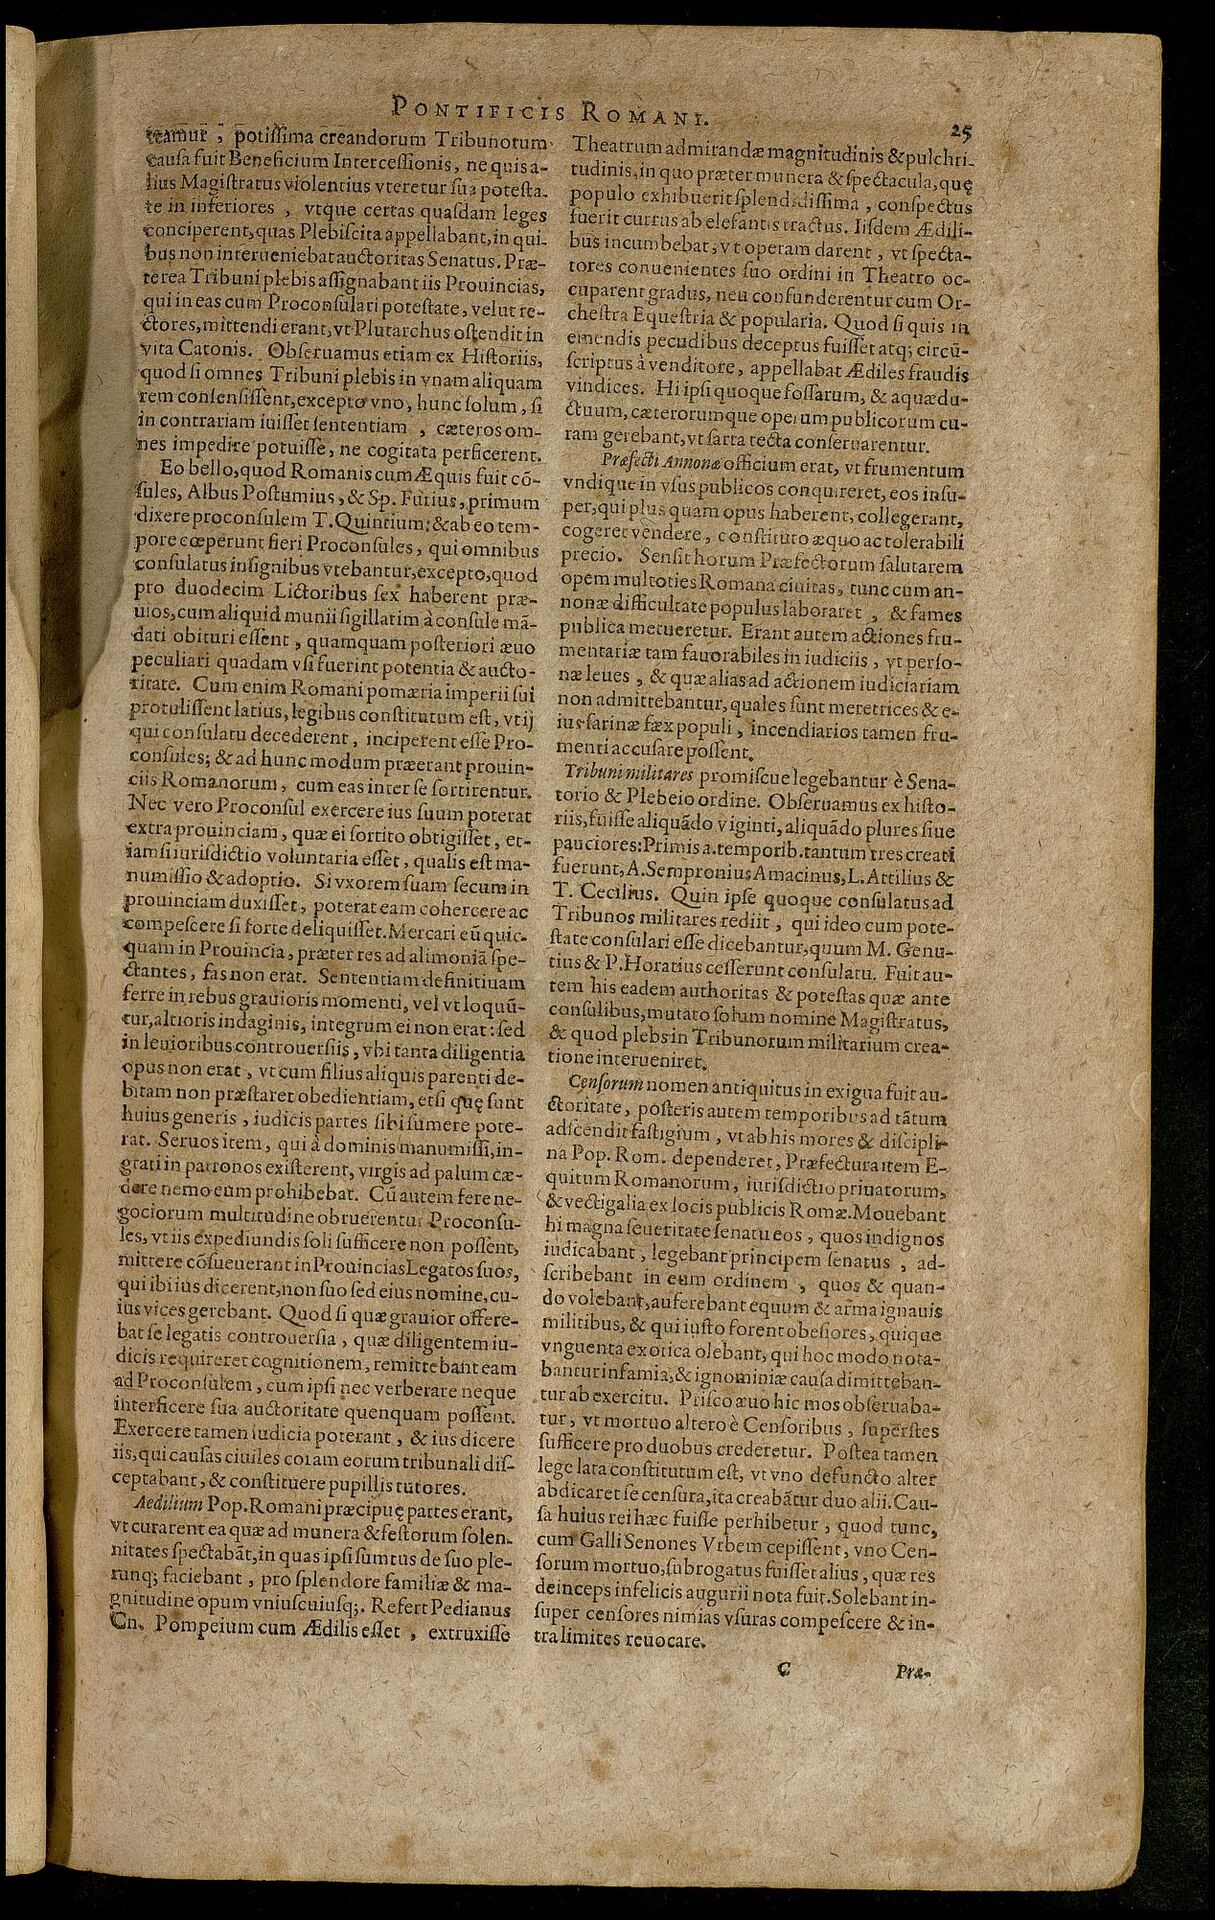 PONTIFICIS ROMANI.
25
teamur, potissima creandorum Tribunorum
causa fuit Beneficium Intercessionis, ne quis a-
lius Magistratus violentius vteretur sua potesta-
te in inferiores, vtque certas quasdam leges
conciperent, quas Plebiscita appellabant, in qui-
bus non interueniebat auctoritas Senatus. Præ-
terea Tribuni plebis assignabant iis Prouincias,
qui in eas cum Proconsulari potestate, velut re-
ctores, mittendi erant, vt Plutarchus ostendit in
vita Catonis. Obseruamus etiam ex Historiis,
quod si omnes Tribuni plebis in vnam aliquam
rem consensissent, excepto vno, hunc solum, si
in contrariam iuisset sententiam, cæteros om-
nes impedire potuisse, ne cogitata perficerent.
Eo bello, quod Romanis cum Æquis fuit cõ-
sules, Albus Postumius, & Sp. Furius, primum
dixere proconsulem T. Quintium: & ab eo tem-
pore cœperunt fieri Proconsules, qui omnibus
consulatus insignibus vtebantur, excepto, quod
pro duodecim Lictoribus sex haberent præ-
uios, cum aliquid munii sigillatim à consule mã-
dati obituri essent, quamquam posteriori æuo
peculiari quadam vsi fuerint potentia & aucto-
ritate. Cum enim Romani pomæria imperii sui
protulissent latius, legibus constitutum est, vt ij
qui consulatu decederent, inciperent esse Pro-
consules; & ad hunc modum præerant prouin-
ciis Romanorum, cum eas inter se sortirentur.
Nec vero Proconsul exercere ius suum poterat
extra prouinciam, quæ ei sortito obtigisset, et-
iam si iurisdictio voluntaria esset, qualis est ma-
numissio & adoptio. Si vxorem suam secum in
prouinciam duxisset, poterat eam cohercere ac
compescere si forte deliquisset. Mercari eũ quic-
quam in Prouincia, præter res ad alimoniã spe-
ctantes, fas non erat. Sententiam definitiuam
ferre in rebus grauioris momenti, vel vt loquũ-
tur, altioris indaginis, integrum ei non erat: sed
in leuioribus controuersiis, vbi tanta diligentia
opus non erat, vt cum filius aliquis parenti de-
bitam non præstaret obedientiam, etsi quę sunt
huius generis, iudicis partes sibi sumere pote-
rat. Seruos item, qui à dominis manumissi, in-
grati in patronos existerent, virgis ad palum cæ-
dere nemo eum prohibebat. Cũ autem fere ne-
gociorum multitudine obruerentur Proconsu-
les, vt iis expediundis soli sufficere non possent,
mittere cõsueuerant in Prouincias Legatos suos,
qui ibi ius dicerent, non suo sed eius nomine, cu-
ius vices gerebant. Quod si quæ grauior offere-
bat se legatis controuersia, quæ diligentem iu-
dicis requireret cognitionem, remittebant eam
ad Proconsulem, cum ipsi nec verberare neque
interficere sua auctoritate quenquam possent.
Exercere tamen iudicia poterant, & ius dicere
iis, qui causas ciuiles coram eorum tribunali dis-
ceptabant, & constituere pupillis tutores.
Aedilium Pop. Romani præcipuę partes erant,
vt curarent ea quæ ad munera & festorum solen-
nitates spectabãt, in quas ipsi sumtus de suo ple-
runq; faciebant, pro splendore familiæ & ma-
gnitudine opum vniuscuiusq;. Refert Pedianus
Cn. Pompeium cum Ædilis esset, extruxisse
Theatrum admirandæ magnitudinis & pulchri-
tudinis, in quo præter munera & spectacula, quę
populo exhibuerit splendidissima, conspectus
fuerit currus ab elefantis tractus. Iisdem Ædili-
bus incumbebat, vt operam darent, vt specta-
tores conuenientes suo ordini in Theatro oc-
cuparent gradus, neu confunderentur cum Or-
chestra Equestria & popularia. Quod si quis in
emendis pecudibus deceptus fuisset atq; circũ-
scriptus à venditore, appellabat Ædiles fraudis
vindices. Hi ipsi quoque fossarum, & aquædu-
ctuum, cæterorumque operum publicorum cu-
ram gerebant, vt sarta tecta conseruarentur.
Præfecti Annonæ officium erat, vt frumentum
vndique in vsus publicos conquireret, eos insu-
per, qui plus quam opus haberent, collegerant,
cogeret vendere, constituto æquo ac tolerabili
precio. Sensit horum Præfectorum salutarem
opem multoties Romana ciuitas, tunc cum an-
nonæ difficultate populus laboraret, & fames
publica metueretur. Erant autem actiones fru-
mentariæ tam fauorabiles in iudiciis, vt perso-
næ leues, & quæ alias ad actionem iudiciariam
non admittebantur, quales sunt meretrices & e-
ius farinæ fæx populi, incendiarios tamen fru-
menti accusare possent.
Tribuni militares promiscue legebantur è Sena-
torio & Plebeio ordine. Obseruamus ex histo-
riis, fuisse aliquãdo viginti, aliquãdo plures siue
pauciores: Primis a. temporib. tantum tres creati
fuerunt, A. Sempronius Amacinus, L. Attilius &
T. Cecilius. Quin ipse quoque consulatus ad
Tribunos militares rediit, qui ideo cum pote-
state consulari esse dicebantur, quum M. Genu-
tius & P. Horatius cesserunt consulatu. Fuit au-
tem his eadem authoritas & potestas quæ ante
consulibus, mutato solum nomine Magistratus,
& quod plebs in Tribunorum militarium crea-
tione interueniret.
Censorum nomen antiquitus in exigua fuit au-
ctoritate, posteris autem temporibus ad tãtum
adscendit fastigium, vt ab his mores & discipli-
na Pop. Rom. dependeret, Præfectura item E-
quitum Romanorum, iurisdictio priuatorum,
& vectigalia ex locis publicis Romæ. Mouebant
hi magna seueritate senatu eos, quos indignos
iudicabant, legebant principem senatus, ad-
scribebant in eum ordinem, quos & quan-
do volebant, auferebant equum & arma ignauis
militibus, & qui iusto forent obesiores, quique
vnguenta exotica olebant, qui hoc modo nota-
bantur infamia, & ignominiæ causa dimitteban-
tur ab exercitu. Prisco æuo hic mos obseruaba-
tur, vt mortuo altero è Censoribus, superstes
sufficere pro duobus crederetur. Postea tamen
lege lata constitutum est, vt vno defuncto alter
abdicaret se censura, ita creabãtur duo alii. Cau-
sa huius rei hæc fuisse perhibetur, quod tunc,
cum Galli Senones Vrbem cepissent, vno Cen-
sorum mortuo, subrogatus fuisset alius, quæ res
deinceps infelicis augurii nota fuit. Solebant in-
super censores nimias vsuras compescere & in-
tra limites reuocare.
C
Præ-